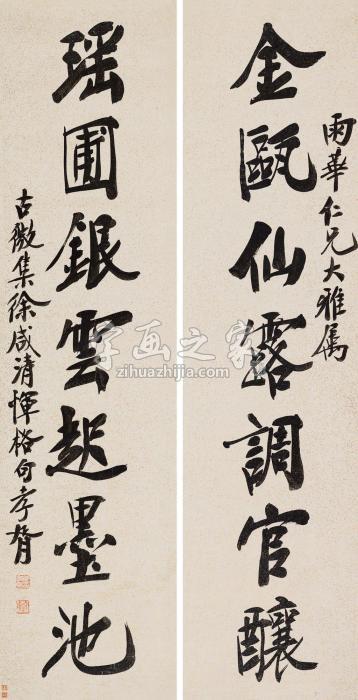 雨華仁兄大雅属
金甌仙露調官釀
瑶圃銀雲起墨池
古微集徐咸清惲格句孝臧
字画之家
zihuazhijia.com